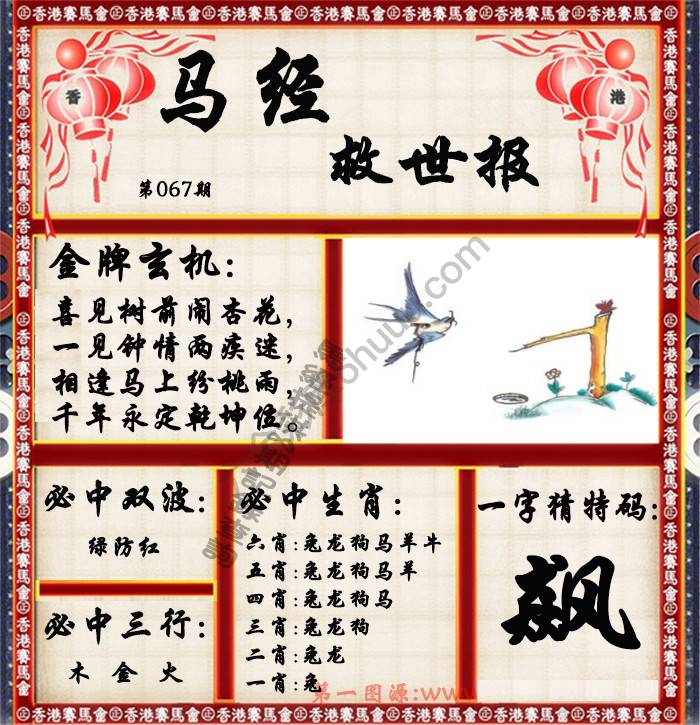 香港賽馬會
香 港
马经
救世报
第067期
金牌玄机:
喜见树前闹杏花,
一见钟情两痰迷,
相逢马上纷桃雨,
千年永定乾坤位。
必中双波:
绿防红
必中三行:
木 金 火
必中生肖:
六肖:兔龙狗马羊牛
五肖:兔龙狗马羊
四肖:兔龙狗马
三肖:兔龙狗
二肖:兔龙
一肖:兔
一字猜特码:
飙
第一图源:www.